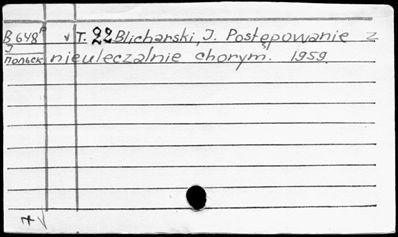 B 648 v T. 22 Blicharski, J. Postępowanie z
J
польск nieuleczalnie chorym. 1959